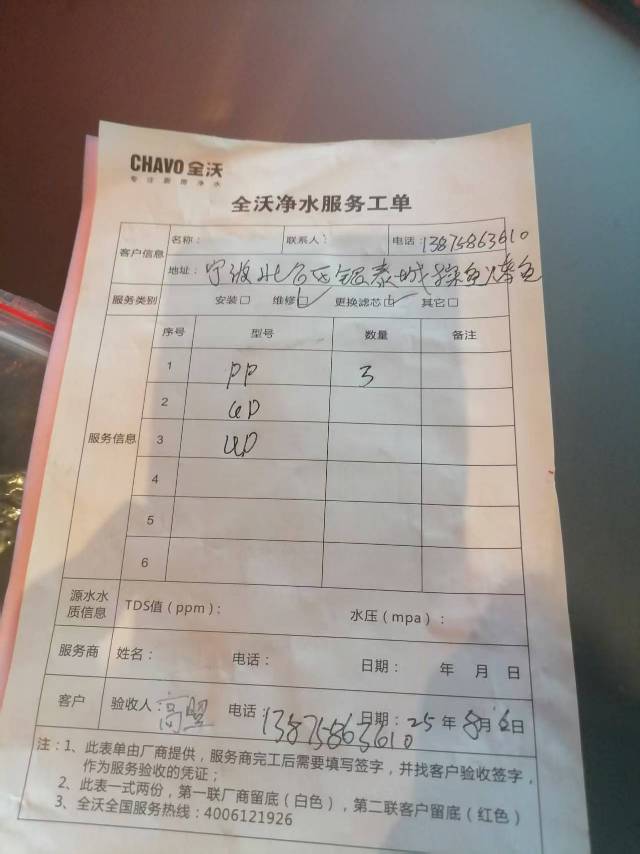 CHAVO 全沃
专注厨房净水
全沃净水服务工单
客户信息 名称： 联系人： 电话：13875863610
地址：宁波北仑区银泰城探鱼烤鱼
服务类别 安装□ 维修☑ 更换滤芯☑ 其它□
服务信息 序号 型号 数量 备注
1 PP 3
2 UP
3 UP
4
5
6
源水水质信息 TDS值（ppm）： 水压（mpa）：
服务商 姓名： 电话： 日期： 年 月 日
客户 验收人：高盟 电话：13875863610 日期：25年8月 日
注：1、此表单由厂商提供，服务商完工后需要填写签字，并找客户验收签字，
作为服务验收的凭证；
2、此表一式两份，第一联厂商留底（白色），第二联客户留底（红色）
3、全沃全国服务热线：4006121926